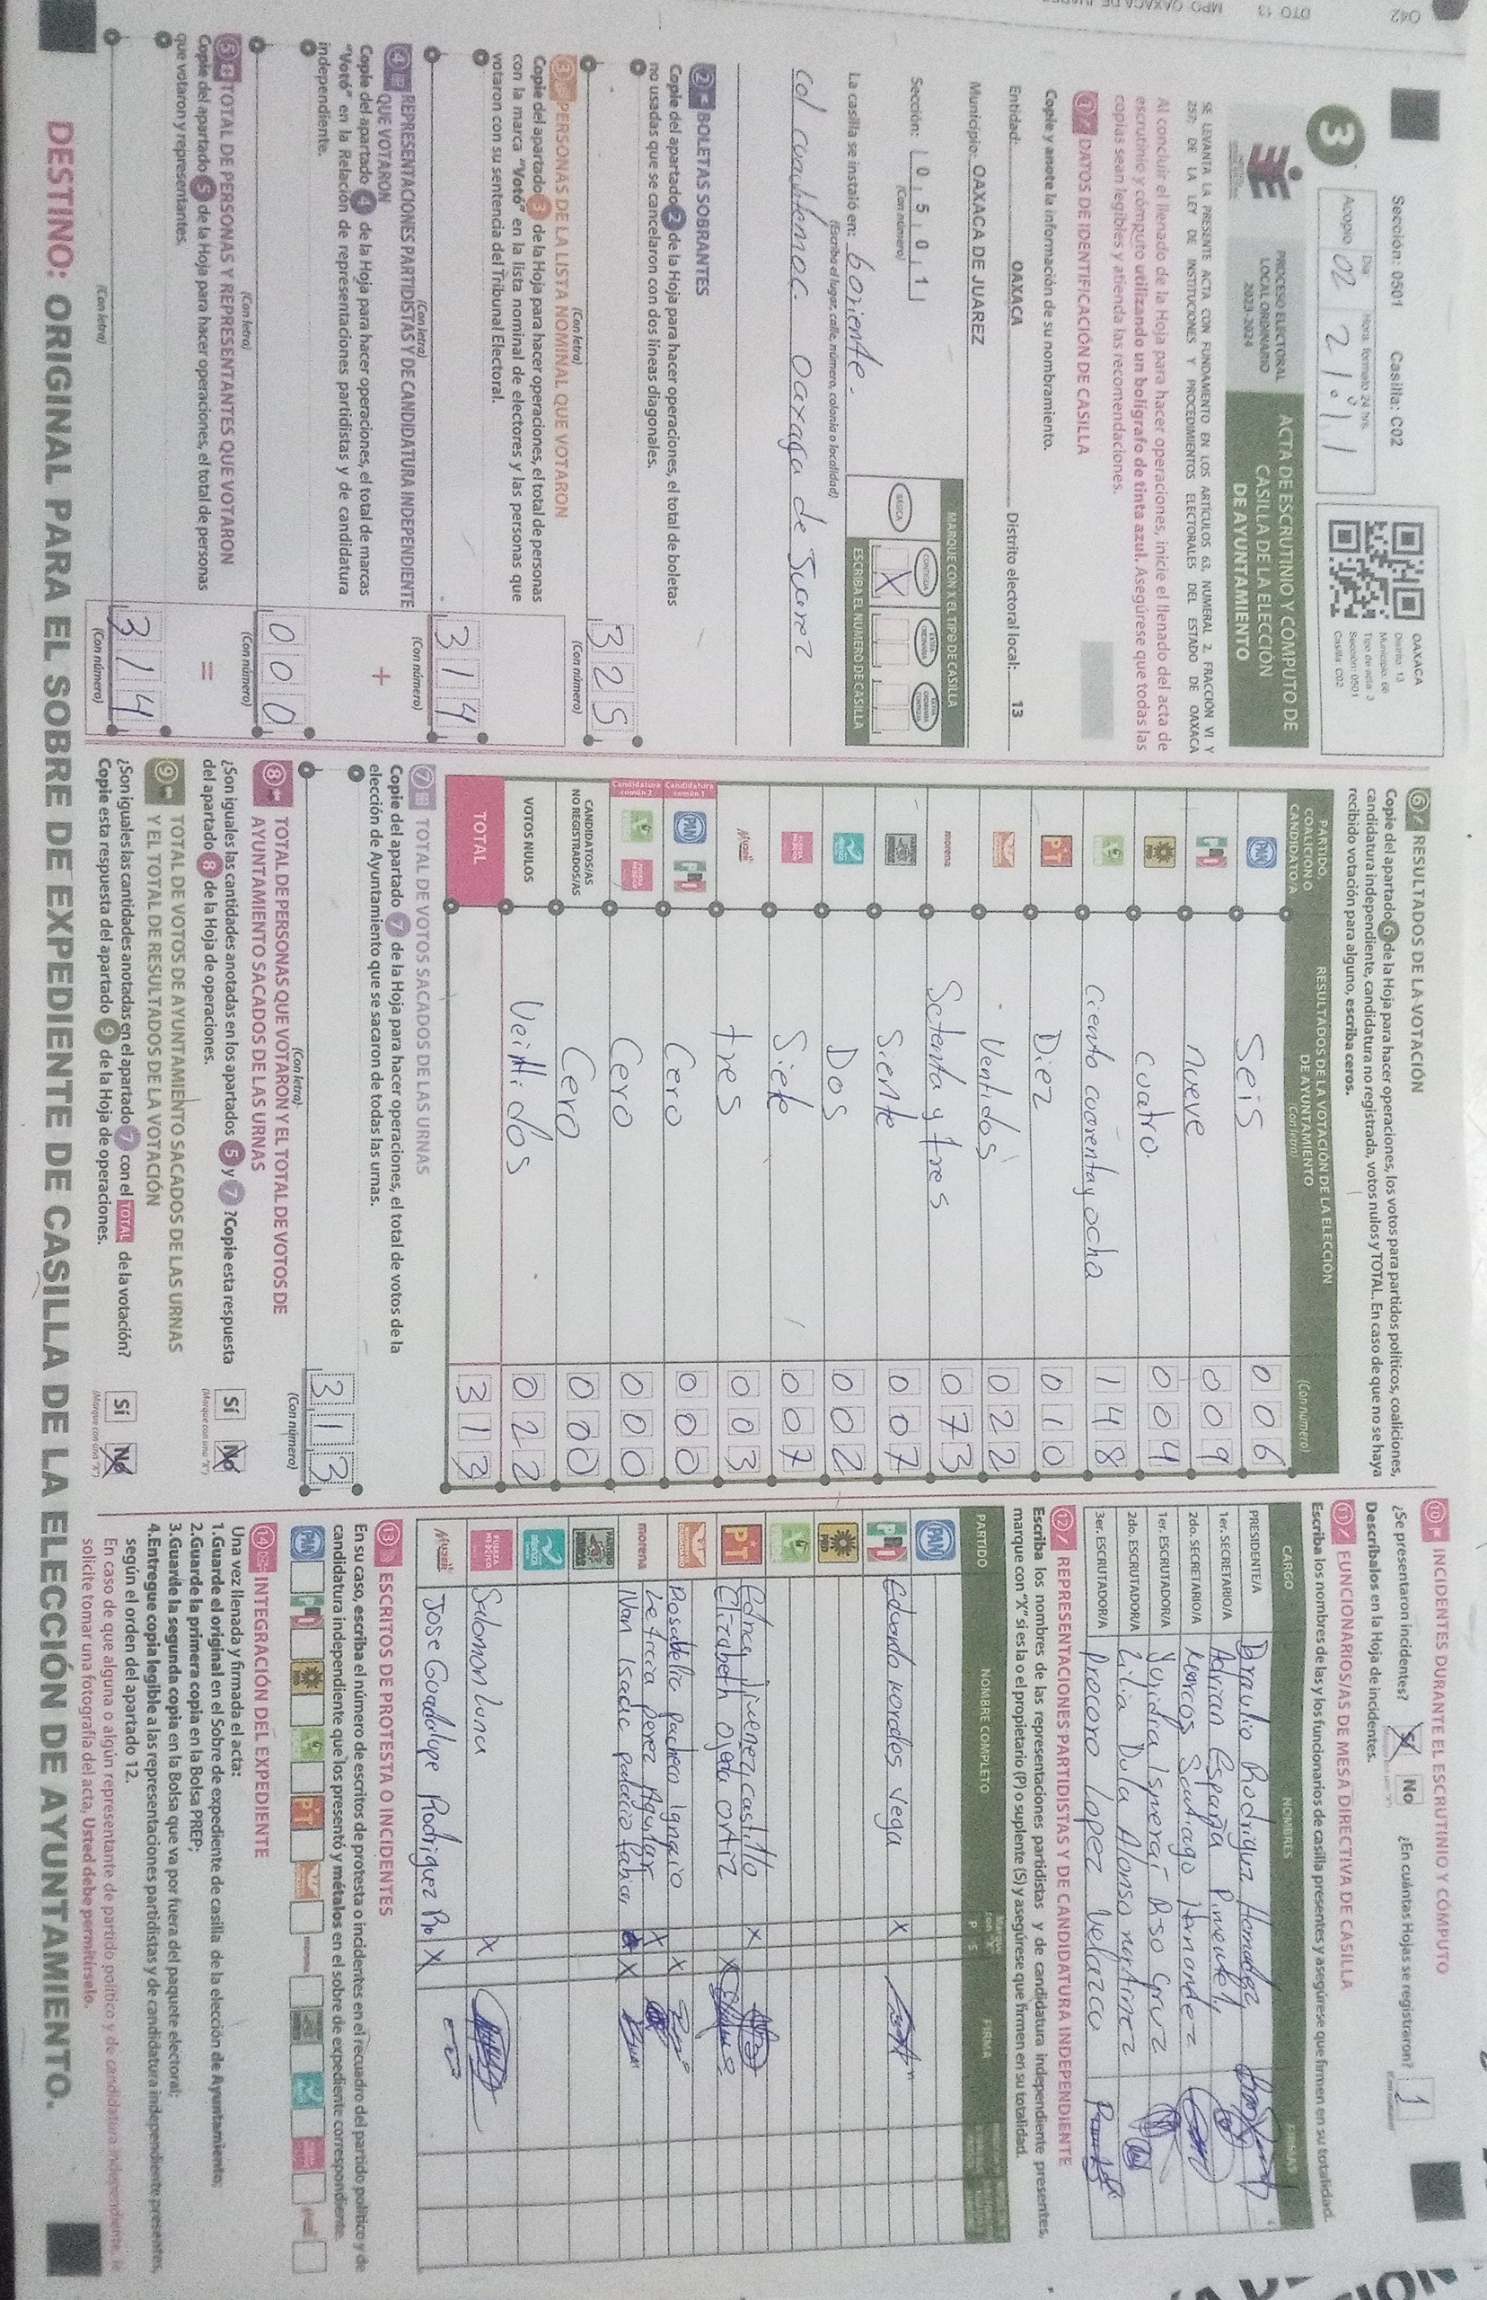 Sección: 0501 Casilla: C02
3
Día Hora: formato 24 hrs.
Acopio 02 21:11
OAXACA
Distrito: 13
Municipio: 66
Tipo de acta: 3
Sección: 0501
Casilla: C02
PROCESO ELECTORAL
LOCAL ORDINARIO
2023-2024
ACTA DE ESCRUTINIO Y CÓMPUTO DE
CASILLA DE LA ELECCIÓN
DE AYUNTAMIENTO
SE LEVANTA LA PRESENTE ACTA CON FUNDAMENTO EN LOS ARTÍCULOS 63, NUMERAL 2, FRACCIÓN VI Y
257; DE LA LEY DE INSTITUCIONES Y PROCEDIMIENTOS ELECTORALES DEL ESTADO DE OAXACA
Al concluir el llenado de la Hoja para hacer operaciones, inicie el llenado del acta de
escrutinio y cómputo utilizando un bolígrafo de tinta azul. Asegúrese que todas las
copias sean legibles y atienda las recomendaciones.
1 DATOS DE IDENTIFICACIÓN DE CASILLA
Copie y anote la información de su nombramiento.
Entidad: OAXACA Distrito electoral local: 13
Municipio: OAXACA DE JUAREZ
Sección: 0501
(Con número)
MARQUE CON X EL TIPO DE CASILLA
BÁSICA CONTIGUA EXTRAORDINARIA EXTRAORDINARIA CONTIGUA
X
ESCRIBA EL NÚMERO DE CASILLA
La casilla se instaló en: boriente.
(Escriba el lugar, calle, número, colonia o localidad)
col cuahtemoc. Oaxaca de Juarez
2 BOLETAS SOBRANTES
Copie del apartado 2 de la Hoja para hacer operaciones, el total de boletas
no usadas que se cancelaron con dos líneas diagonales.
325
(Con letra) (Con número)
3 PERSONAS DE LA LISTA NOMINAL QUE VOTARON
Copie del apartado 3 de la Hoja para hacer operaciones, el total de personas
con la marca "Votó" en la lista nominal de electores y las personas que
votaron con su sentencia del Tribunal Electoral.
314
(Con letra) (Con número)
4 REPRESENTACIONES PARTIDISTAS Y DE CANDIDATURA INDEPENDIENTE
QUE VOTARON
Copie del apartado 4 de la Hoja para hacer operaciones, el total de marcas
"Votó" en la Relación de representaciones partidistas y de candidatura
independiente.
+
000
(Con letra) (Con número)
5 TOTAL DE PERSONAS Y REPRESENTANTES QUE VOTARON
Copie del apartado 5 de la Hoja para hacer operaciones, el total de personas
que votaron y representantes.
=
314
(Con letra) (Con número)
6 RESULTADOS DE LA VOTACIÓN
Copie del apartado 6 de la Hoja para hacer operaciones, los votos para partidos políticos, coaliciones,
candidatura independiente, candidatura no registrada, votos nulos y TOTAL. En caso de que no se haya
recibido votación para alguno, escriba ceros.
PARTIDO,
COALICIÓN O
CANDIDATO/A
RESULTADOS DE LA VOTACIÓN DE LA ELECCIÓN
DE AYUNTAMIENTO
(Con letra)
(Con número)
PAN Seis 006
PRI nueve 009
cuatro. 004
ciento cuarenta y ocho 148
PT Diez 010
Ventidos 022
morena Setenta y tres 073
Siente 007
Dos 002
Siete 007
tres 003
Candidatura común 1 PAN PRI Cero 000
Candidatura común 2 Cero 000
CANDIDATOS/AS
NO REGISTRADOS/AS Cero 000
VOTOS NULOS Veintidos 022
TOTAL 313
7 TOTAL DE VOTOS SACADOS DE LAS URNAS
Copie del apartado 7 de la Hoja para hacer operaciones, el total de votos de la
elección de Ayuntamiento que se sacaron de todas las urnas.
313
(Con letra) (Con número)
8 TOTAL DE PERSONAS QUE VOTARON Y EL TOTAL DE VOTOS DE
AYUNTAMIENTO SACADOS DE LAS URNAS
¿Son iguales las cantidades anotadas en los apartados 5 y 7 ?Copie esta respuesta
del apartado 8 de la Hoja de operaciones.
Sí No
(Marque con una "X")
9 TOTAL DE VOTOS DE AYUNTAMIENTO SACADOS DE LAS URNAS
Y EL TOTAL DE RESULTADOS DE LA VOTACIÓN
¿Son iguales las cantidades anotadas en el apartado 7 con el TOTAL de la votación?
Copie esta respuesta del apartado 9 de la Hoja de operaciones.
Sí No
(Marque con una "X")
10 INCIDENTES DURANTE EL ESCRUTINIO Y CÓMPUTO
¿Se presentaron incidentes? Sí No ¿En cuántas Hojas se registraron? 1
Descríbalos en la Hoja de incidentes.
11 FUNCIONARIOS/AS DE MESA DIRECTIVA DE CASILLA
Escriba los nombres de las y los funcionarios de casilla presentes y asegúrese que firmen en su totalidad.
CARGO NOMBRES FIRMAS
PRESIDENTE/A Braulio Rodriguez Hernandez
1er. SECRETARIO/A Adrian España Pimentel
2do. SECRETARIO/A Marcos Santiago Hernandez
1er. ESCRUTADOR/A
2do. ESCRUTADOR/A Lilia Dula Alonso martinez
3er. ESCRUTADOR/A Procoro Lopez Velazco
12 REPRESENTACIONES PARTIDISTAS Y DE CANDIDATURA INDEPENDIENTE
Escriba los nombres de las representaciones partidistas y de candidatura independiente presentes,
marque con "X" si es la o el propietario (P) o suplente (S) y asegúrese que firmen en su totalidad.
PARTIDO NOMBRE COMPLETO P S FIRMA
PAN
PRI Eduardo Morales Vega X
PRD
Edna Jimenez castillo X
PT Elizabeth Ojeda ortiz X
Rosadelia pacheco Ignacio X
Leticia perez Aguilar X
morena Ivan Isaac X
Salomon luna X
Jose Guadalupe Rodriguez X
13 ESCRITOS DE PROTESTA O INCIDENTES
En su caso, escriba el número de escritos de protesta o incidentes en el recuadro del partido político y de
candidatura independiente que los presentó y métalos en el sobre de expediente correspondiente.
14 INTEGRACIÓN DEL EXPEDIENTE
Una vez llenada y firmada el acta:
1.Guarde el original en el Sobre de expediente de casilla de la elección de Ayuntamiento;
2.Guarde la primera copia en la Bolsa PREP;
3.Guarde la segunda copia en la Bolsa que va por fuera del paquete electoral;
4.Entregue copia legible a las representaciones partidistas y de candidatura independiente presentes,
según el orden del apartado 12.
En caso de que alguna o algún representante de partido político y de candidatura independiente, le
solicite tomar una fotografía del acta, Usted debe permitírselo.
DESTINO: ORIGINAL PARA EL SOBRE DE EXPEDIENTE DE CASILLA DE LA ELECCIÓN DE AYUNTAMIENTO.